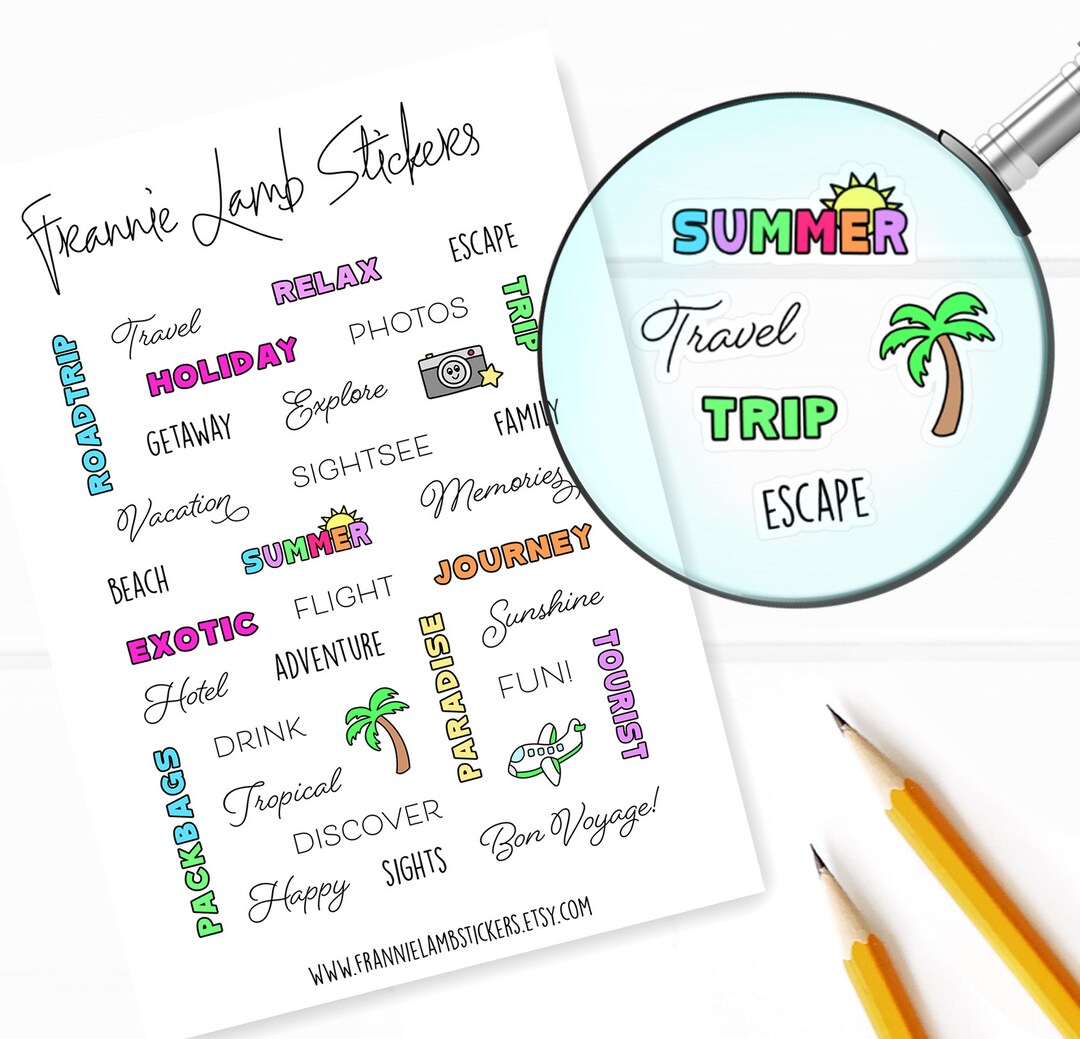 Frannie Lamb Stickers
ESCAPE
RELAX
TRIP
Travel
PHOTOS
ROADTRIP
HOLIDAY
Explore
GETAWAY
FAMILY
SIGHTSEE
Vacation
Memories
SUMMER
JOURNEY
BEACH
FLIGHT
Sunshine
EXOTIC
ADVENTURE
PARADISE
TOURIST
Hotel
FUN!
DRINK
PACKBAGS
Tropical
DISCOVER
Bon Voyage!
SIGHTS
Happy
WWW.FRANNIELAMBSTICKERS.ETSY.COM
SUMMER
Travel
TRIP
ESCAPE